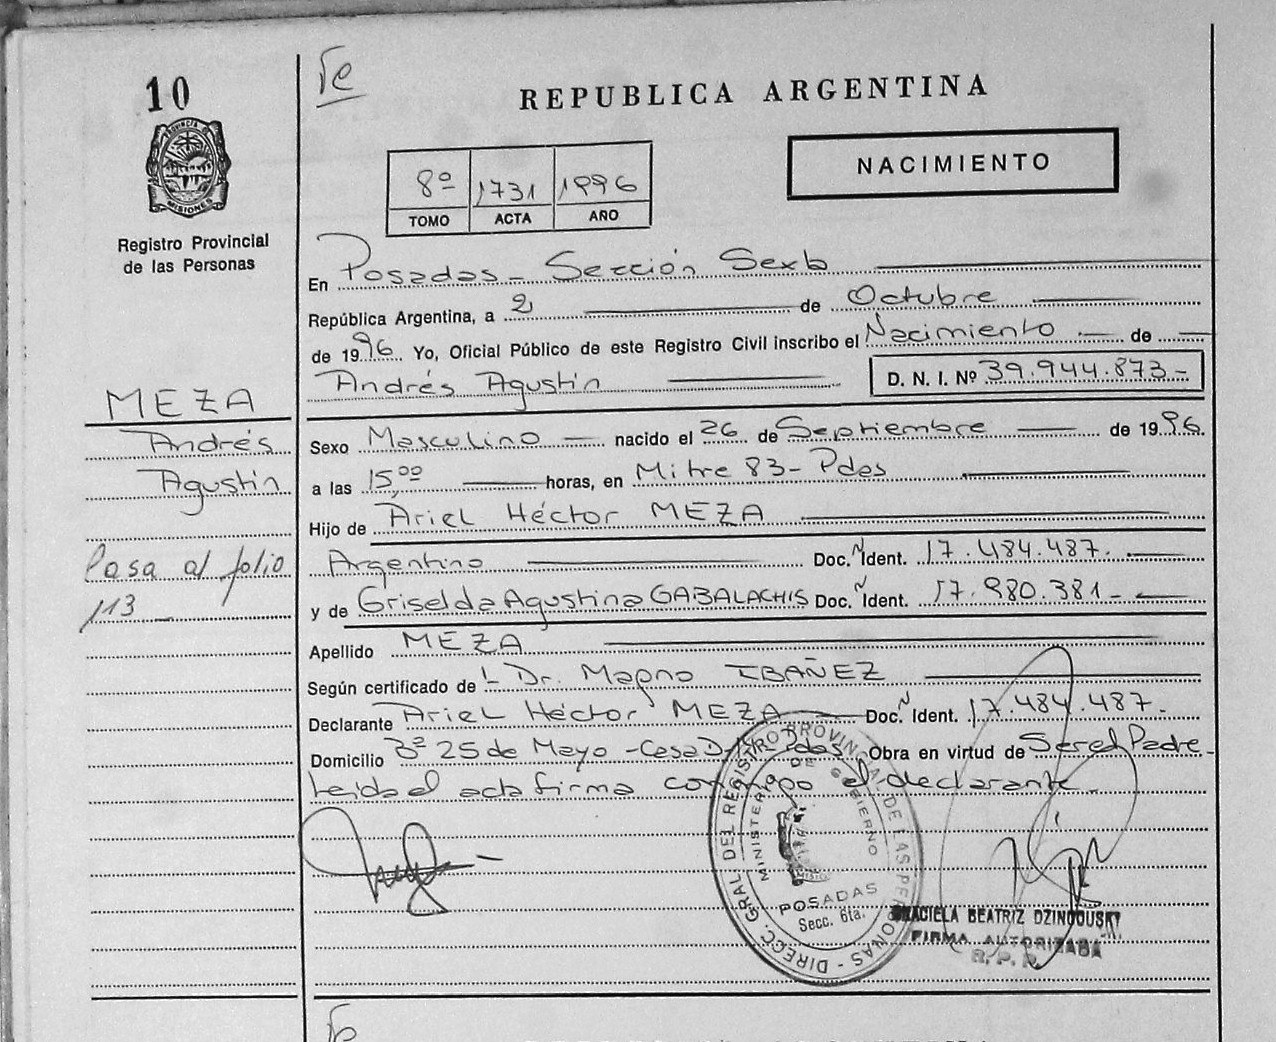 10
PROVINCIA DE
MISIONES
Registro Provincial
de las Personas
MEZA
Andrés
Agustín
Pasa al folio
113
REPUBLICA ARGENTINA
8º 1731 1996
TOMO ACTA AÑO
NACIMIENTO
En Posadas - Sección Sexta
República Argentina, a 2 de Octubre
de 1996 Yo, Oficial Público de este Registro Civil inscribo el Nacimiento de
Andrés Agustín D. N. I. Nº 39.944.873-
Sexo Masculino nacido el 26 de Septiembre de 1996.
a las 15,00 horas, en Mitre 83- Pdas
Hijo de Ariel Héctor MEZA
Argentino Doc. Ident. 17.484.487.
y de Griselda Agustina GABALACHIS Doc. Ident. 17.980.381-
Apellido MEZA
Según certificado de L Dr. Magno IBAÑEZ
Declarante Ariel Héctor MEZA Doc. Ident. 17.484.487-
Domicilio Bº 25 de Mayo - Casa Pdas Obra en virtud de Ser el Padre-
Leida el acta firma conmigo el declarante.
DIRECC. GRAL DEL REGISTRO PROVINCIAL DE LAS PERSONAS -
MINISTERIO DE GOBIERNO
POSADAS
Secc. 6ta.
GRACIELA BEATRIZ DZINDOUSKY
FIRMA AUTORIZADA
R. P. P.